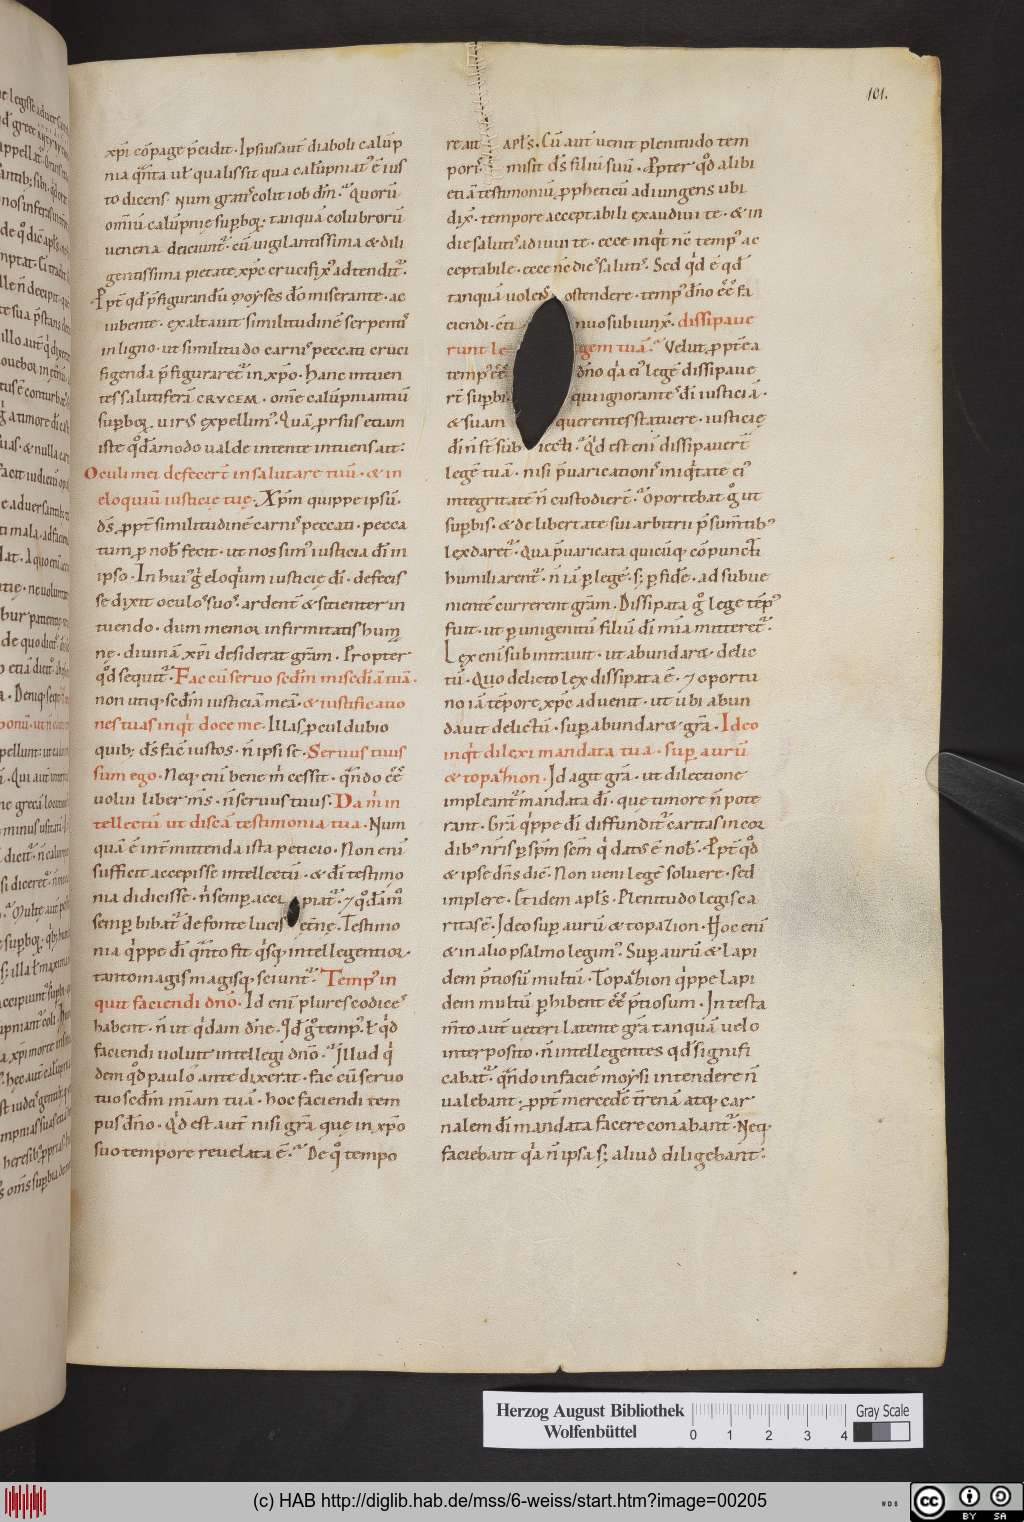 101.
xp̄i cōpage p̄cidit. Ipsius aut̄ diaboli calūp
nia q̄nta ul̄ qualis sit qua calūpniat᷒ ē ius
to dicens. Num gratis colit iob dm̄. Quorū
omiū calūpnię sup̄boꝝ. tanquā colubrorū
uenena deiciunt᷒. cū uigilantissima & dili
gentissima pietate xp̄c crucifix᷒ adtendit᷒.
Ppt̄ qd̄ p̄figurandū moyses dō miserante. ac
iubente. exaltauit similitudinē serpentis
in ligno. ut similitudo carnis peccati cruci
figenda p̄figuraret᷒ in xp̄o. Hanc intuen
tes salutiferā crucem. om̄e calūpniantiū
sup̄boꝝ. uir᷒ expellim᷒. Quā ꝓrsus etiam
iste qd̄āmodo ualde intente intuens ait.
Oculi mei defecert̄ in salutare tuū. & in
eloquiū iusticię tuę. Xp̄m quippe ipsū.
d̄s ꝓpt̄ similitudinē carnis peccati. pecca
tum ꝓ nob̄ fecit. ut nos sim᷒ iusticia dī in
ipso. In hui᷒ g̊ eloq̇um iusticię dī. defecis
se dixit oculos suos. ardent̄ & sitienter in
tuendo. dum memor infirmitatis hum
nę. diuinā xp̄i desiderat gr̄am. Propter
qd̄ sequit᷒. Fac cū seruo sedm̄ mise͂diā tuā.
non utiq. sedm̄ iusticiā meā. & iustificatio
nes tuas inq̇t doce me. Illas ꝓcul dubio
quib; d̄s fac̄ iustos. n̄ ipsi se. Seruus tuus
sum ego. Neq. enī bene m̄ cessit. qn̄do ēē
uolui liber m̄s. n̄ seruus tuus. Da m̄ in
tellectū ut discā testimonia tua. Num
quā ē int̄mittenda ista peticio. Non enī
sufficit accepisse intellectū. & dī testimo
nia didicisse. n̄ semp̄ acci piat᷒. ⁊ qd̄ām᷒
semp̄ bibat᷒ de fonte lucis et̄nę. Testimo
nia q̇ppe dī qn̄to fit q̇sq. intellegentior.
tanto magis magisq. sciunt᷒. Temp᷒ in
quit faciendi dn̄o. Id enī plures codices
habent. n̄ ut q̇dam dn̄e. Qd̄ g̊ temp᷒. l̄ q̇d
faciendi uoluit intellegi dn̄o. Illud q̇
dem qd̄ paulo ante dixerat. fac cū seruo
tuo sedm̄ mīam tuā. hoc faciendi tem
pus dn̄o. Q̇d est aut̄ nisi gr̄a que in xp̄o
suo tempore reuelata ē. De q̊ tempo
re ait apl̄s. Cū aut̄ uenit plenitudo tem
poris misit d̄s filiū suū. Ppter qd̄ alibi
etiā testimoniū ꝓpheticū adiungens ubi
dix̄. tempore acceptabili exaudiui te. & in
die salutis adiuui te. ecce inq̇t n̄c temp᷒ ac
ceptabile. ecce n̄c dies salutis. Sed q̇d ē qd̄
tanquā uolens ostendere. temp᷒ dn̄o ēē fa
ciendi. c̄ti nuo subiunx̄. dissipaue
runt le gem tuā. Velut ꝓpt̄ea
temp᷒ ēē dn̄o q̇a ei᷒ legē dissipaue
rt̄ sup̄bi. qui ignorantes dī iusticiā.
& suam querentes statuere. iusticię
dī n̄ st̄ sub iecti. Q̇d est enī dissipauert̄
legē tuā. nisi p̄uaricationis iniq̇tate ei᷒
integritatē n̄ custodiert̄. Oportebat g̊ ut
sup̄bis. & de libertate sui arbitrii p̄sum̄tib᷒
lex daret᷒. Qua p̄uaricata quicūq. cōpuncti
humiliarent᷒. n̄ iā ꝑ legē. s; ꝑ fidē. ad subue
nientē currerent gr̄am. Dissipata g̊ lege tēp᷒
fuit. ut ꝑ unigenitū filiū dī mīa mitteret᷒.
Lex enī subintrauit. ut abundar&. delic
tū. Quo delicto lex dissipata ē. ⁊ oportu
no iā tēpore xp̄c aduenit. ut ubi abun
dauit delictū. sup̄abundar& gr̄a. Ideo
inq̇t dilexi mandata tua. sup̄ aurū
& topazion. Id agit gr̄a. ut dilectione
impleant᷒ mandata dī. que timore n̄ pote
rant. Gr̄a q̇ppe dī diffundit᷒ caritas in cor
dib᷒ nr̄is ꝑ spm̄ sc̄m q̇ datus ē nob̄. Ppt̄ qd̄
& ipse dn̄s dic̄. Non ueni legē soluere. sed
implere. Et idem apl̄s. Plenitudo legis ca
ritas ē. Ideo sup̄ aurū & topazion. Hoc enī
& in alio psalmo legim᷒. Sup̄ aurū & lapi
dem p̄tiosū multū. Topazion q̇ppe lapi
dem multū ꝑhibent ēē p̄tiosum. In testa
m̄to aut̄ ueteri latente gr̄a tanquā uelo
interposito. n̄ intellegentes qd̄ signifi
cabat᷒. qn̄do in faciē moysi intendere n̄
ualebant. ꝓpt̄ mercedē t̄renā atq. car
nalem dī mandata facere conabant᷒. Neq.
faciebant q̇a n̄ ipsa s; aliud diligebant.
Herzog August Bibliothek
Wolfenbüttel
0 1 2 3 4
Gray Scale
(c) HAB http://diglib.hab.de/mss/6-weiss/start.htm?image=00205
WDB
cc BY SA